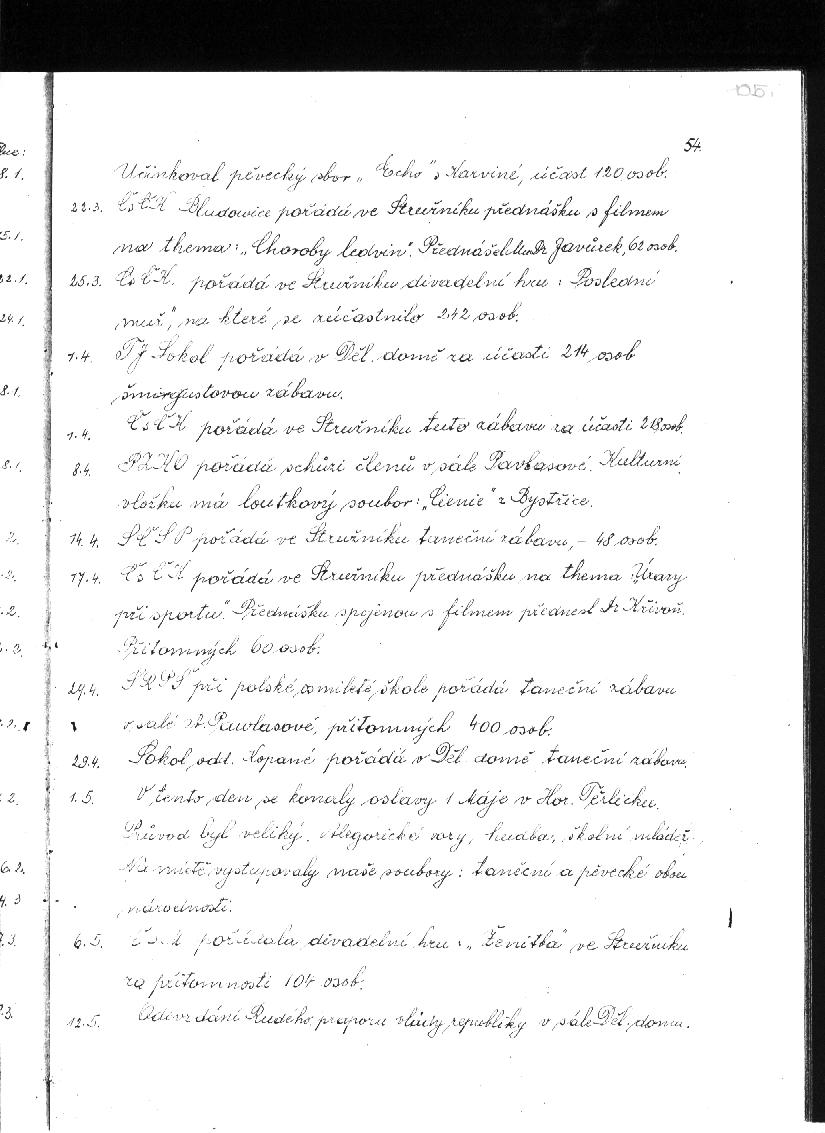 54.
Učinkoval pěvecký sbor „Echo" s Karviné, účast 120 osob.
22.3. ČsČK Bludowice pořádá ve Stružníku přednášku s filmem
na thema: „Choroby ledvin". Přednášel MuDr Javůrek, 62 osob.
25.3. ČsČK. pořádá ve Stružníku divadelní hru: Poslední
muž", na které se zúčastnilo 242 osob.
1.4. TJ Sokol pořádá v Děl. domě za účasti 214 osob
šmirgustovou zábavu.
1.4. ČsČK pořádá ve Stružníku tuto zábavu za účasti 218 osob.
8.4. PZKO pořádá schůzi členů v sále Pavlasové. Kulturní
vložku má loutkový soubor: „Cienie" z Bystřice.
14.4. SČSP pořádá ve Stružníku taneční zábavu, - 48 osob.
17.4. ČsČK pořádá ve Stružníku přednášku na thema „Úrazy
při sportu". Přednášku spojenou s filmem přednesl Dr Křivoň.
Přítomných 60 osob.
24.4. SRPŠ při polské osmileté škole pořádá taneční zábavu
v salé A. Pawlasové, přítomných 400 osob.
29.4. Sokol, odd. Kopané pořádá v Děl. domě taneční zábavu
1.5. V tento den se konaly oslavy 1 Máje v Hor. Těrlicku.
Průvod byl veliký. Alegorické vozy, hudba, školní mládež.
Na místě vystupovaly naše soubory: taneční a pěvecké obou
národností.
6.5. pořádala divadelní hru: „Ženitba" ve Stružníku
za přítomnosti 104 osob.
12.5. Odevzdání Rudého praporu vlády republiky v sále Děl. domu.